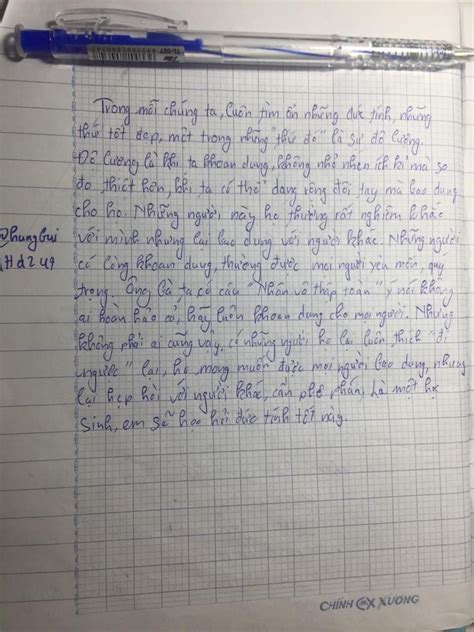 TL-027
Trong mỗi chúng ta, luôn tìm ẩn những đức tính, những
thứ tốt đẹp, một trong những "thứ đó" là sự độ lượng.
Độ lượng là khi ta khoan dung, không nhỏ nhen ích kỉ mà so
đo thiệt hơn, khi ta có thể dang rộng đôi tay mà bao dung
cho họ. Những người này họ thường rất nghiêm khắc
với mình nhưng lại bao dung với người khác. Những người
có lòng khoan dung, thường được mọi người yêu mến, quý
trọng. Ông bà ta có câu "Nhân vô thập toàn" ý nói không
ai hoàn hảo cả, hãy luôn khoan dung cho mọi người. Nhưng
không phải ai cũng vậy, có những người họ lại luôn thích "đi
ngược" lại, họ mong muốn được mọi người bao dung, nhưng
lại hẹp hòi với người khác, cần phê phán. Là một học
sinh, em sẽ học hỏi đức tính tốt này.
@hungbui
Hd249
CHÍNH XƯƠNG